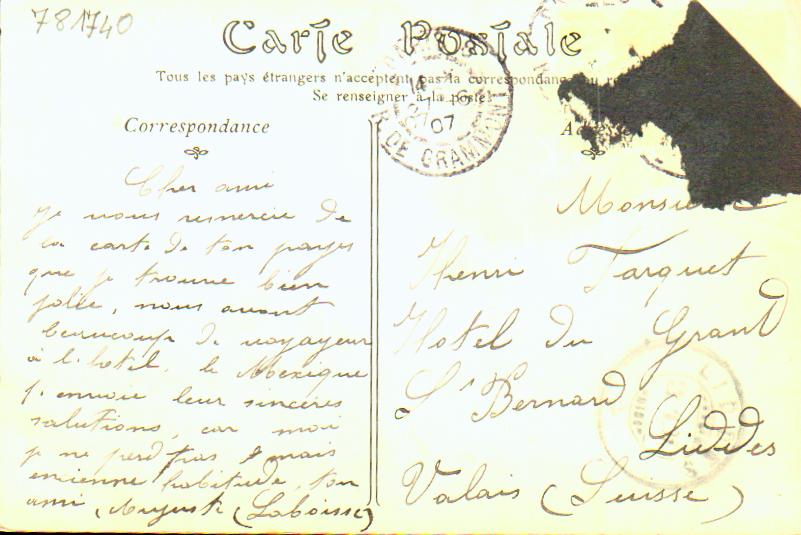 781740
Carte Postale
Tous les pays étrangers n'acceptent pas la correspondance au
Se renseigner à la poste
Correspondance
Adresse
14
6
07
R. DE GRAMMONT
Cher ami
je vous remercie de
la carte de ton payes
que je trouve bien
jolie, nous avont
beaucoup de voyageur
à l. hotel. le Mexique
t. envoie leur sincères
salutions, car moi
je ne perd pas mais
encienne habitude, ton
ami, Auguste (Laboisse)
Monsieur
Henri Tarquet
Hotel du Grand
St Bernard
à Liddes
Valais (Suisse)